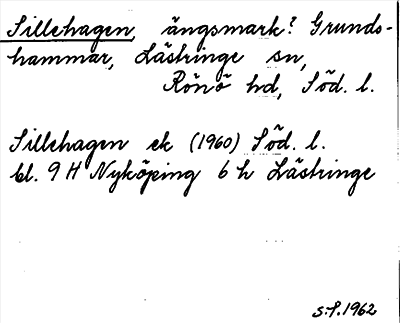 Sillehagen, ängsmark? Grunds-
hammar, Lästringe sn,
Rönö hd, Söd. l.
Sillehagen ek (1960) Söd. l.
bl. 9 H Nyköping 6 h Lästringe
S.S. 1962